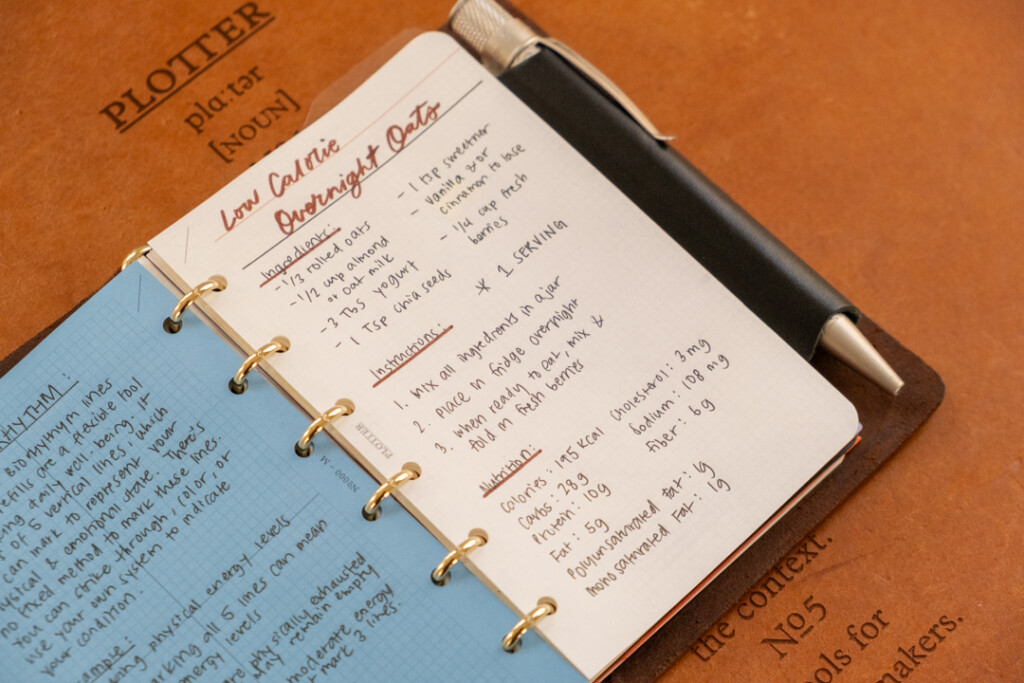 PLOTTER
pla:tər
[NOUN]
Low Calorie
Overnight Oats
Ingredients:
- 1/3 rolled oats
- 1/2 cup almond
or oat milk
- 3 Tbs yogurt
- 1 Tsp chia seeds
- 1 tsp sweetner
- vanilla & or
cinnamon to tase
- 1/4 cup fresh
berries
* 1 SERVING
Instructions:
1. Mix all ingredients in a jar
2. Place in fridge overnight
3. When ready to eat, mix &
fold in fresh berries
Nutrition:
Calories: 195 Kcal
Carbs: 28g
Protein: 10g
Fat: 5g
Polyunsaturated fat: 1g
Monosaturated Fat: 1g
Cholesterol: 3mg
Sodium: 108 mg
Fiber: 6g
PLOTTER
RHYTHM:
Biorhythm lines
refills are a flexible tool
daily well-being. It
of 5 vertical lines, which
can mark to represent your
& emotional state. There's
no fixed method to mark these lines.
You can strike through, color, or
use your own system to indicate
your condition.
physical energy levels
marking all 5 lines can mean
energy levels
physically exhausted
may remain empty
moderate energy
mark 3 lines.
the context.
№5
ools for
makers.